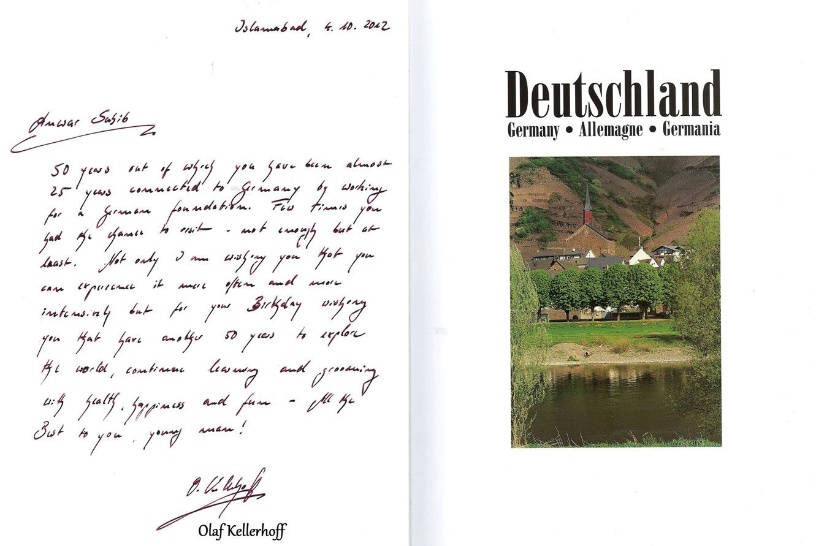 Islamabad, 4. 10. 2012
Anwar Sahib
50 years out of which you have been almost
25 years connected to Germany by working
for a German foundation. Few times you
had the chance to visit - not enough but at
least. Not only I am wishing you that you
can experience it more often and more
intensively but for your Birthday wishing
you that have another 50 years to explore
the world, continue learning and grooming
with health, happiness and fun - All the
Best to you, young man!
O. Kellerhoff
Olaf Kellerhoff
Deutschland
Germany • Allemagne • Germania